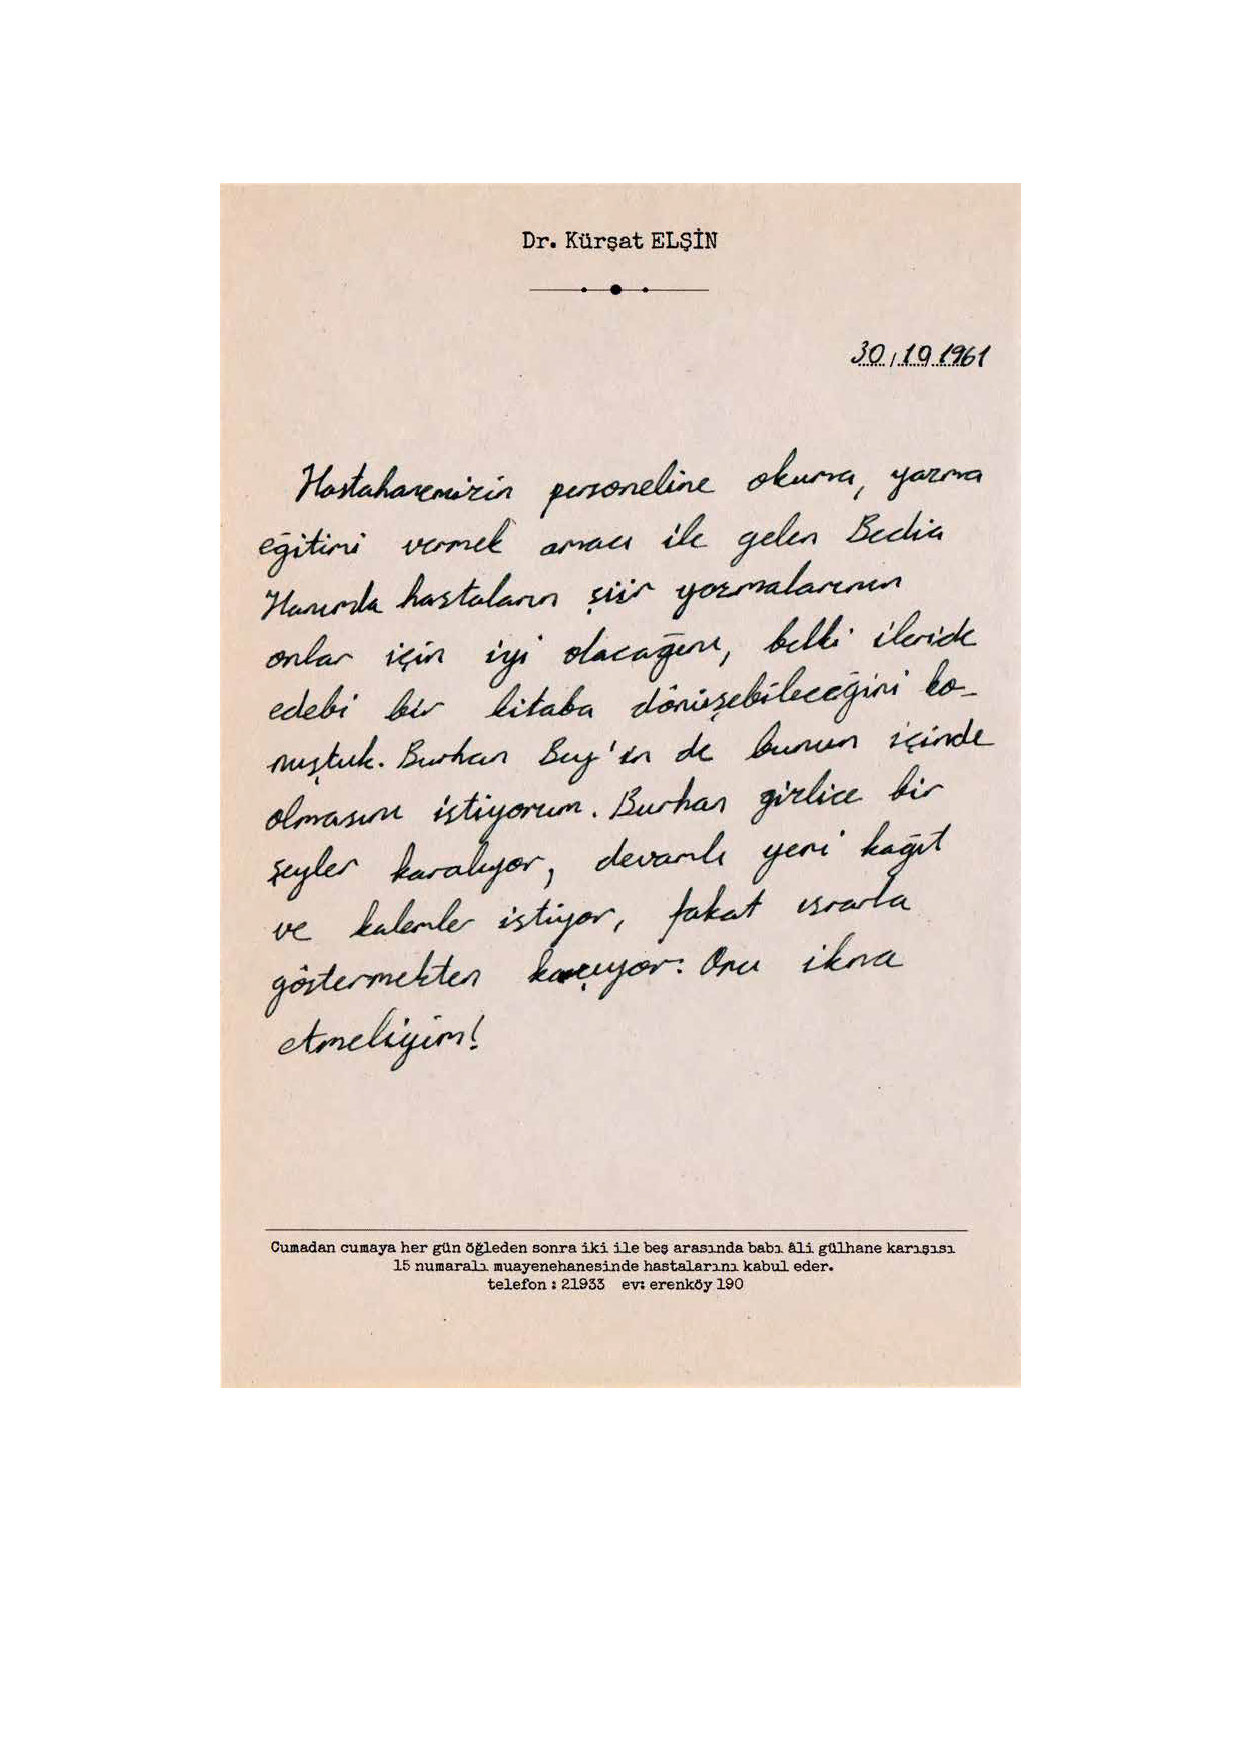 Dr. Kürşat ELŞİN
30/10.1961
Hastahanemizin personeline okuma, yazma
eğitimi vermek amacı ile gelen Bedia
Hanımla hastaların şiir yazmalarının
onlar için iyi olacağını, belki ileride
edebi bir kitaba dönüşebileceğini ko-
nuştuk. Burhan Bey'in de bunun içinde
olmasını istiyorum. Burhan gizlice bir
şeyler karalıyor, devamlı yeni kağıt
ve kalemler istiyor, fakat ısrarla
göstermekten kaçıyor. Onu ikna
etmeliyim!
Cumadan cumaya her gün öğleden sonra iki ile beş arasında babı âli gülhane karışısı
15 numaralı muayenehanesinde hastalarını kabul eder.
telefon : 21933 ev: erenköy 190